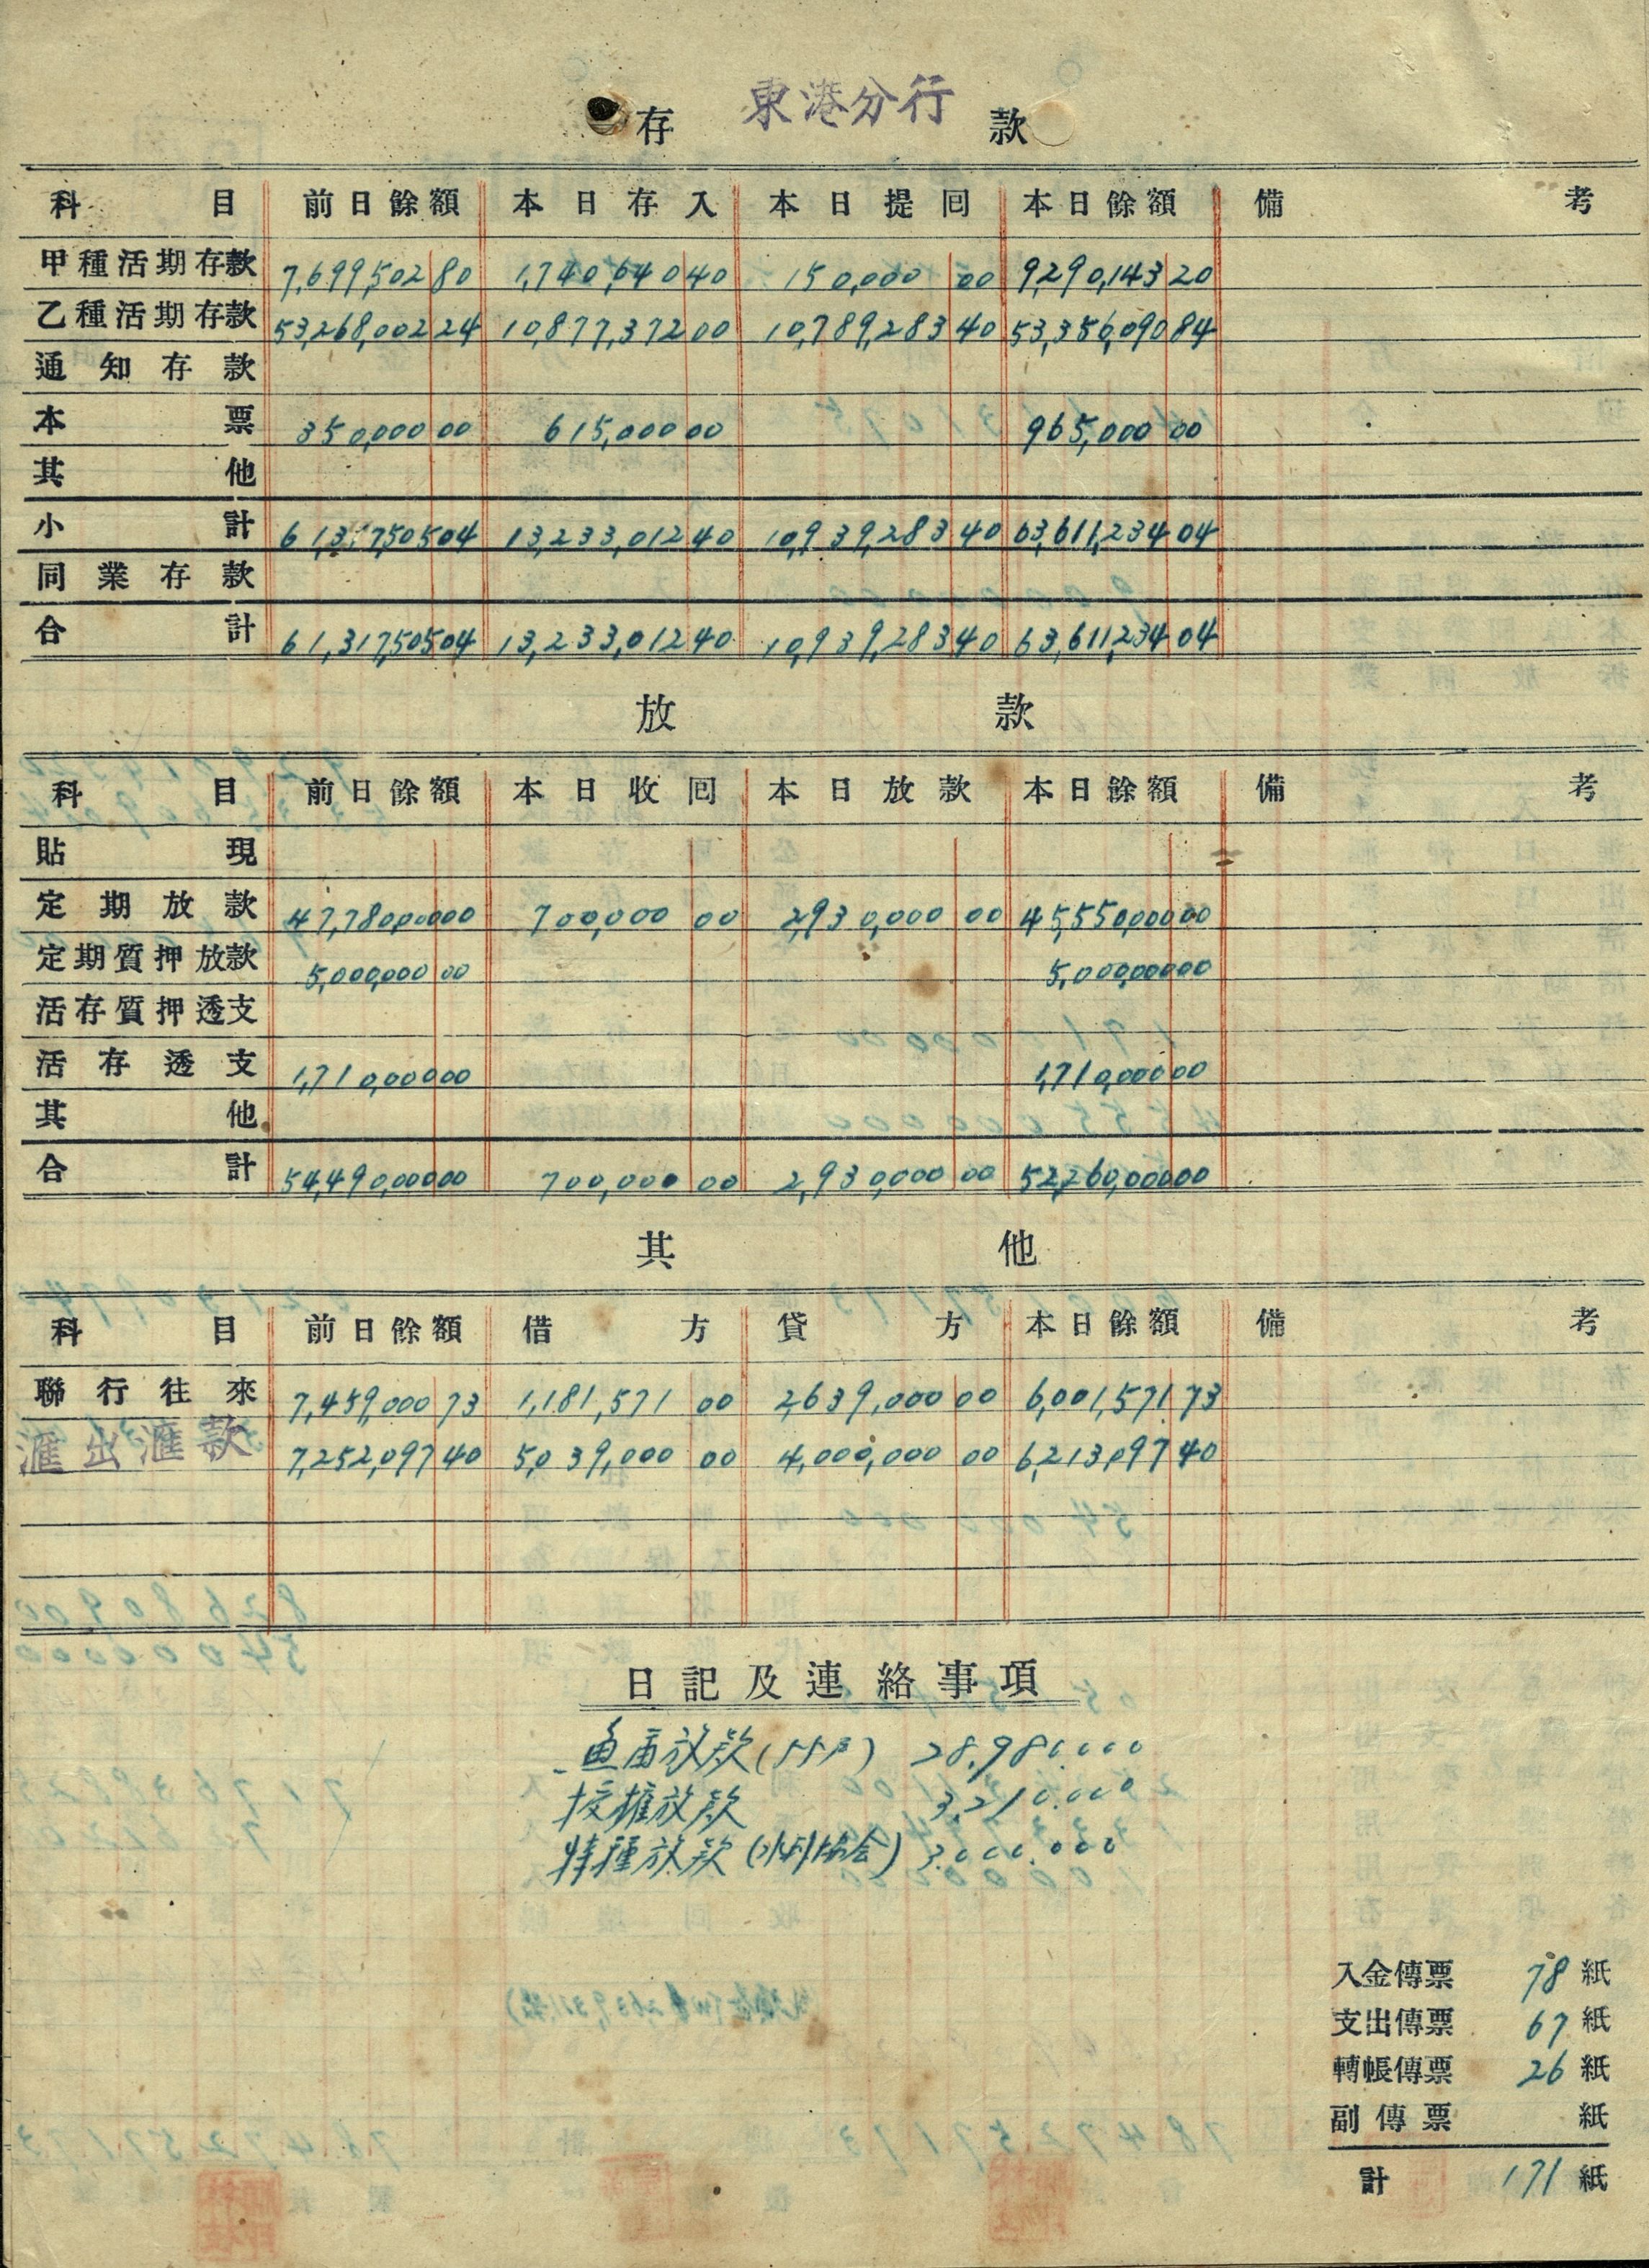 東港分行
存款
科目 前日餘額 本日存入 本日提回 本日餘額 備考
甲種活期存款 7,699,502 80 1,740,640 40 150,000 00 9,290,143 20
乙種活期存款 53,268,002 24 10,877,372 00 10,789,283 40 53,356,090 84
通知存款
本票 350,000 00 615,000 00 965,000 00
其他
小計 61,317,505 04 13,233,012 40 10,939,283 40 63,611,234 04
同業存款
合計 61,317,505 04 13,233,012 40 10,939,283 40 63,611,234 04
放款
科目 前日餘額 本日收回 本日放款 本日餘額 備考
貼現
定期放款 47,780,000 00 700,000 00 2,930,000 00 45,550,000 00
定期質押放款 5,000,000 00 5,000,000 00
活存質押透支
活存透支 1,710,000 00 1,710,000 00
其他
合計 54,490,000 00 700,000 00 2,930,000 00 52,260,000 00
其他
科目 前日餘額 借方 貸方 本日餘額 備考
聯行往來 7,459,000 73 1,181,571 00 2,639,000 00 6,001,571 73
滙出滙款 7,252,097 40 5,039,000 00 4,000,000 00 6,213,097 40
日記及連絡事項
放款 28,980,000
放款 3,210,000
特種放款(水利協会) 3,000,000
入金傳票 78 紙
支出傳票 67 紙
轉帳傳票 26 紙
副傳票 紙
計 171 紙